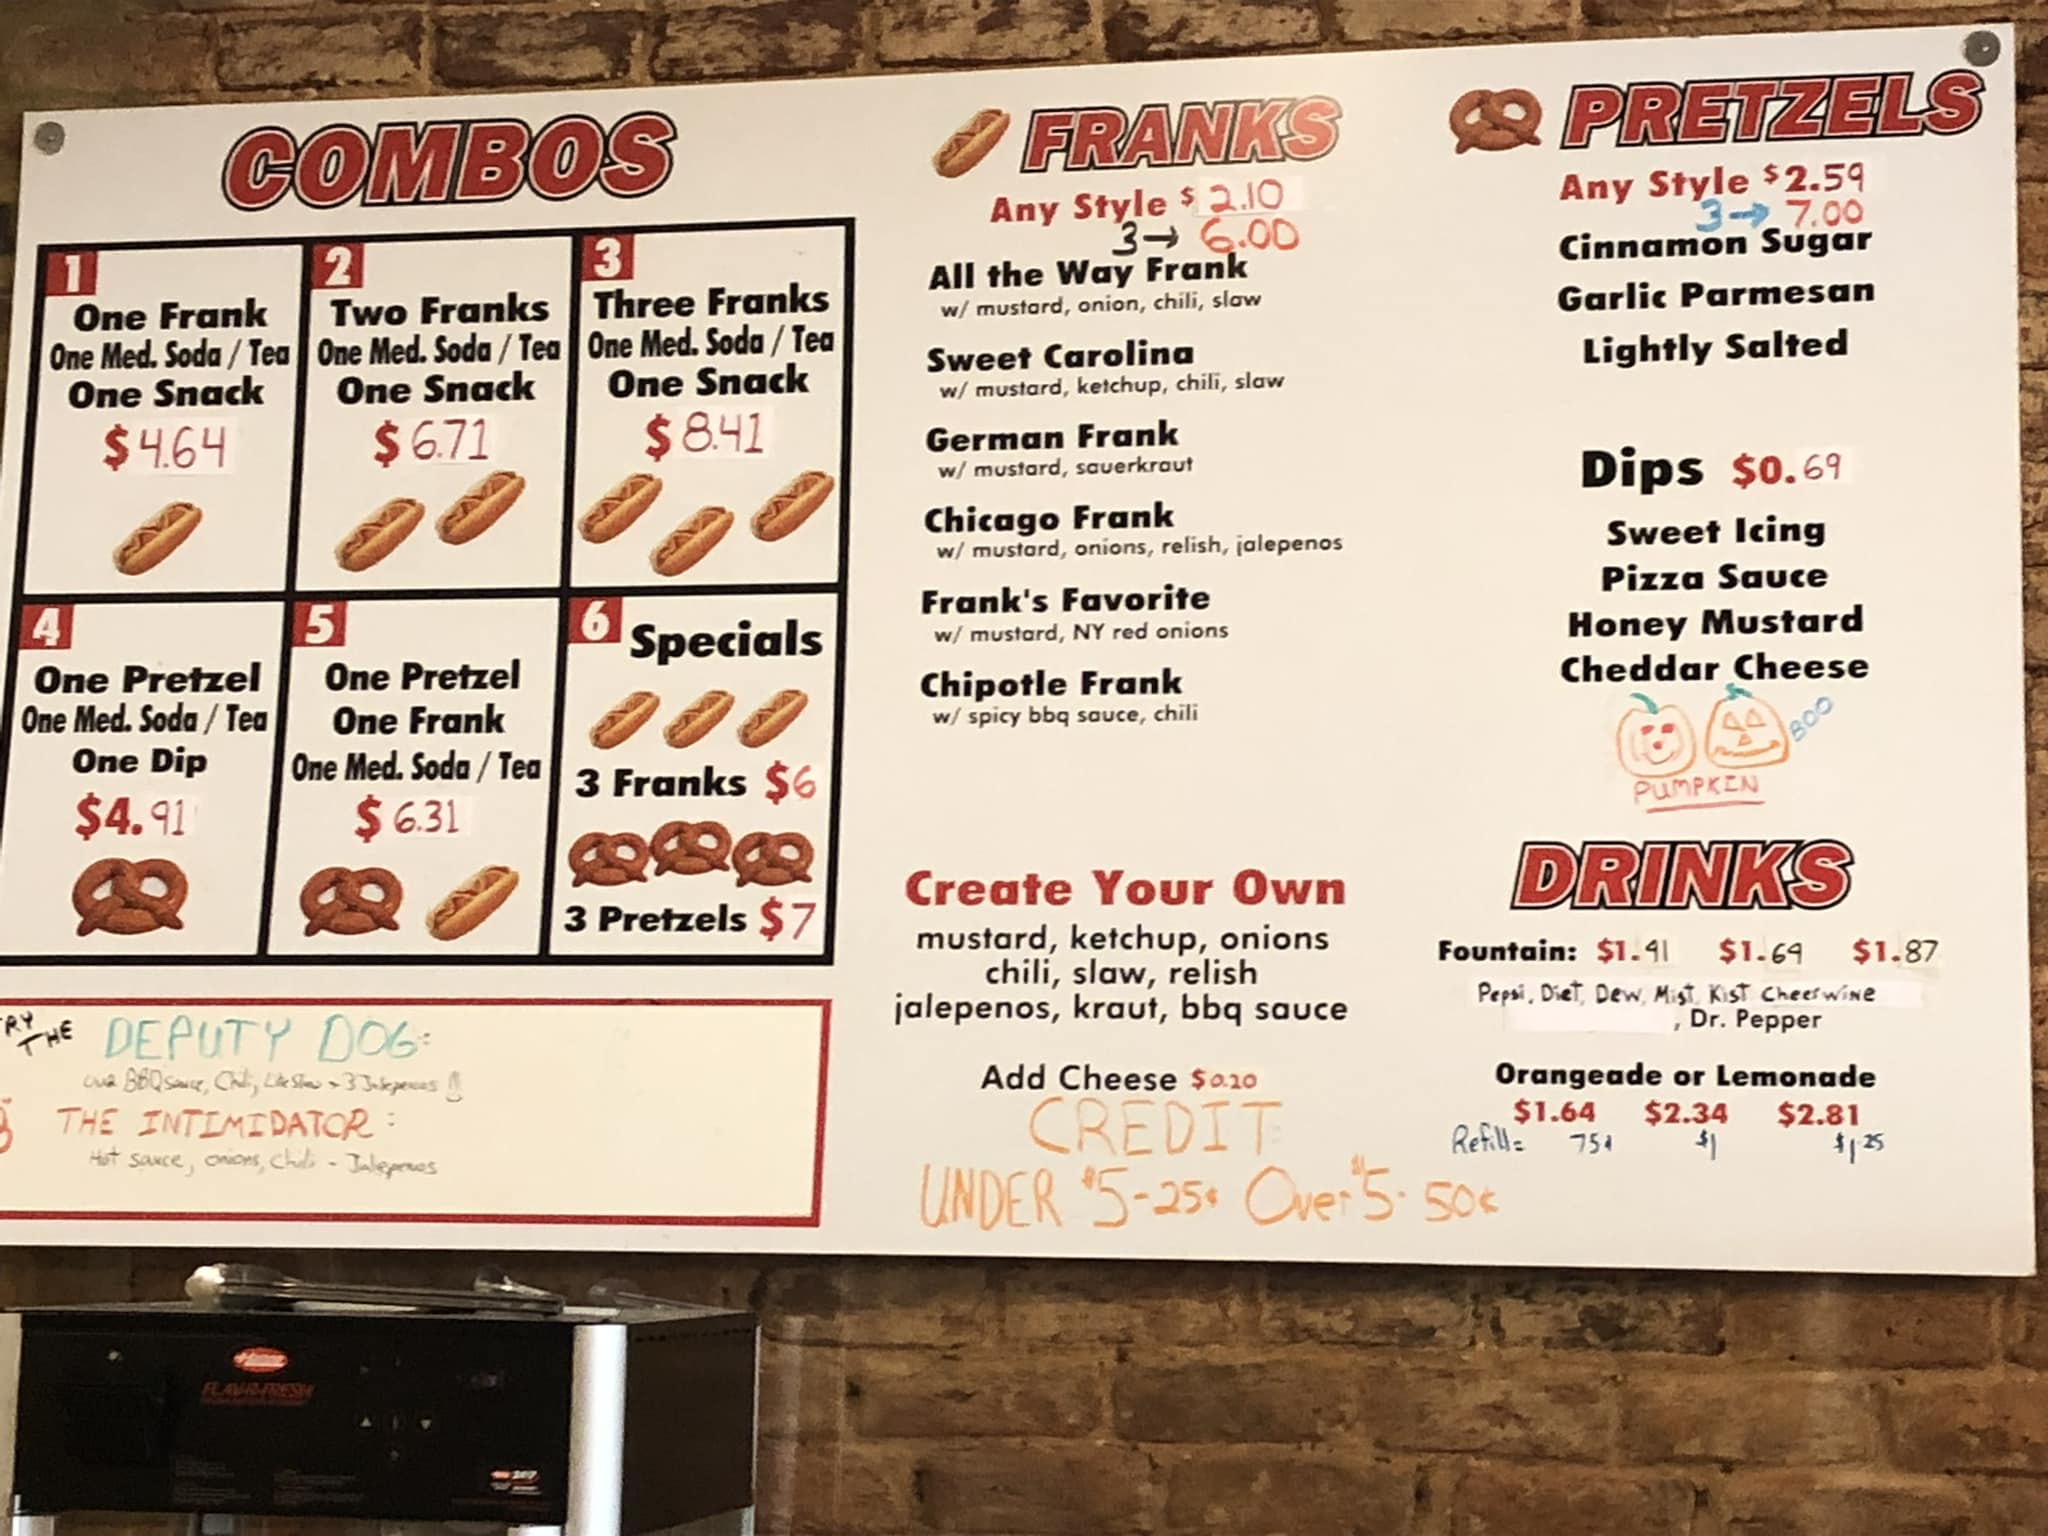 COMBOS
1
One Frank
One Med. Soda / Tea
One Snack
$4.64
2
Two Franks
One Med. Soda / Tea
One Snack
$6.71
3
Three Franks
One Med. Soda / Tea
One Snack
$8.41
4
One Pretzel
One Med. Soda / Tea
One Dip
$4.91
5
One Pretzel
One Frank
One Med. Soda / Tea
$6.31
6
Specials
3 Franks $6
3 Pretzels $7
THE DEPUTY DOG:
BBQ sauce, Chili, 3 Jalepenos
THE INTIMIDATOR:
Hot sauce, onions, Chili - Jalepenos
FRANKS
Any Style $2.10
3→ 6.00
All the Way Frank
w/ mustard, onion, chili, slaw
Sweet Carolina
w/ mustard, ketchup, chili, slaw
German Frank
w/ mustard, sauerkraut
Chicago Frank
w/ mustard, onions, relish, jalepenos
Frank's Favorite
w/ mustard, NY red onions
Chipotle Frank
w/ spicy bbq sauce, chili
Create Your Own
mustard, ketchup, onions
chili, slaw, relish
jalepenos, kraut, bbq sauce
Add Cheese $0.20
CREDIT
UNDER $5-25¢ Over $5-50¢
PRETZELS
Any Style $2.59
3→ 7.00
Cinnamon Sugar
Garlic Parmesan
Lightly Salted
Dips $0.69
Sweet Icing
Pizza Sauce
Honey Mustard
Cheddar Cheese
BOO
PUMPKIN
DRINKS
Fountain: $1.91 $1.69 $1.87
Pepsi, Diet, Dew, Mist, Kist Cheerwine
, Dr. Pepper
Orangeade or Lemonade
$1.64 $2.34 $2.81
Refill= 75¢ $1 $1.25
FLAV-R-FRESH